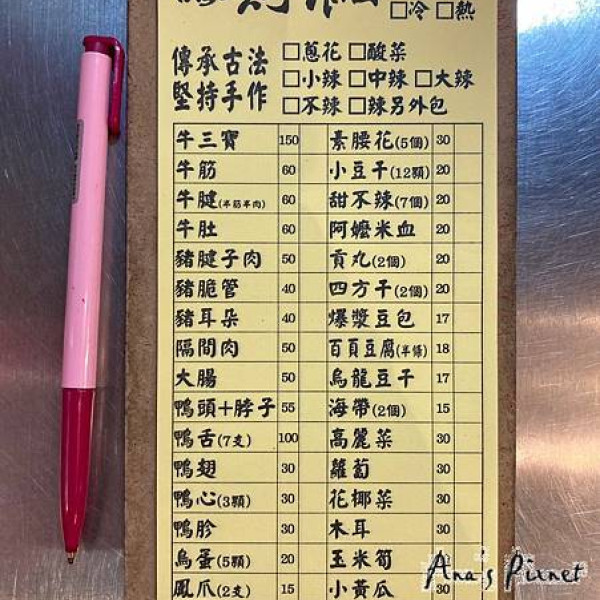 □冷 □熱
傳承古法 □蔥花 □酸菜
堅持手作 □小辣 □中辣 □大辣
□不辣 □辣另外包
牛三寶 150 素腰花(5個) 30
牛筋 60 小豆干(12顆) 20
牛腱(半筋半肉) 60 甜不辣(7個) 20
牛肚 60 阿嬤米血 20
豬腱子肉 50 貢丸(2個) 20
豬脆管 40 四方干(2個) 20
豬耳朵 40 爆漿豆包 17
隔間肉 50 百頁豆腐(半條) 18
大腸 50 烏龍豆干 17
鴨頭+脖子 55 海帶(2個) 15
鴨舌(7支) 100 高麗菜 30
鴨翅 30 蘿蔔 30
鴨心(3顆) 30 花椰菜 30
鴨胗 30 木耳 30
鳥蛋(5顆) 20 玉米筍
鳳爪(2支) 15 小黃瓜
Ana's Pixnet